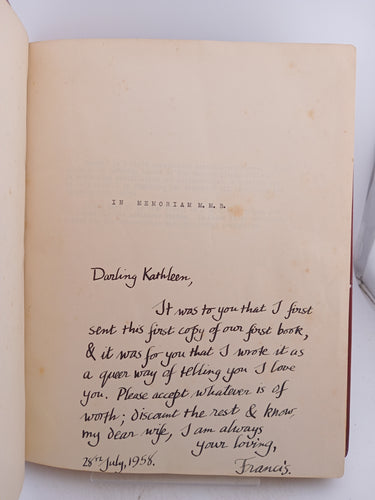 IN MEMORIAM M. M. B.
Darling Kathleen,
It was to you that I first
sent this first copy of our first book,
& it was for you that I wrote it as
a queer way of telling you I love
you. Please accept whatever is of
worth; discount the rest & know,
my dear wife, I am always
your loving,
28th July, 1958. Francis.